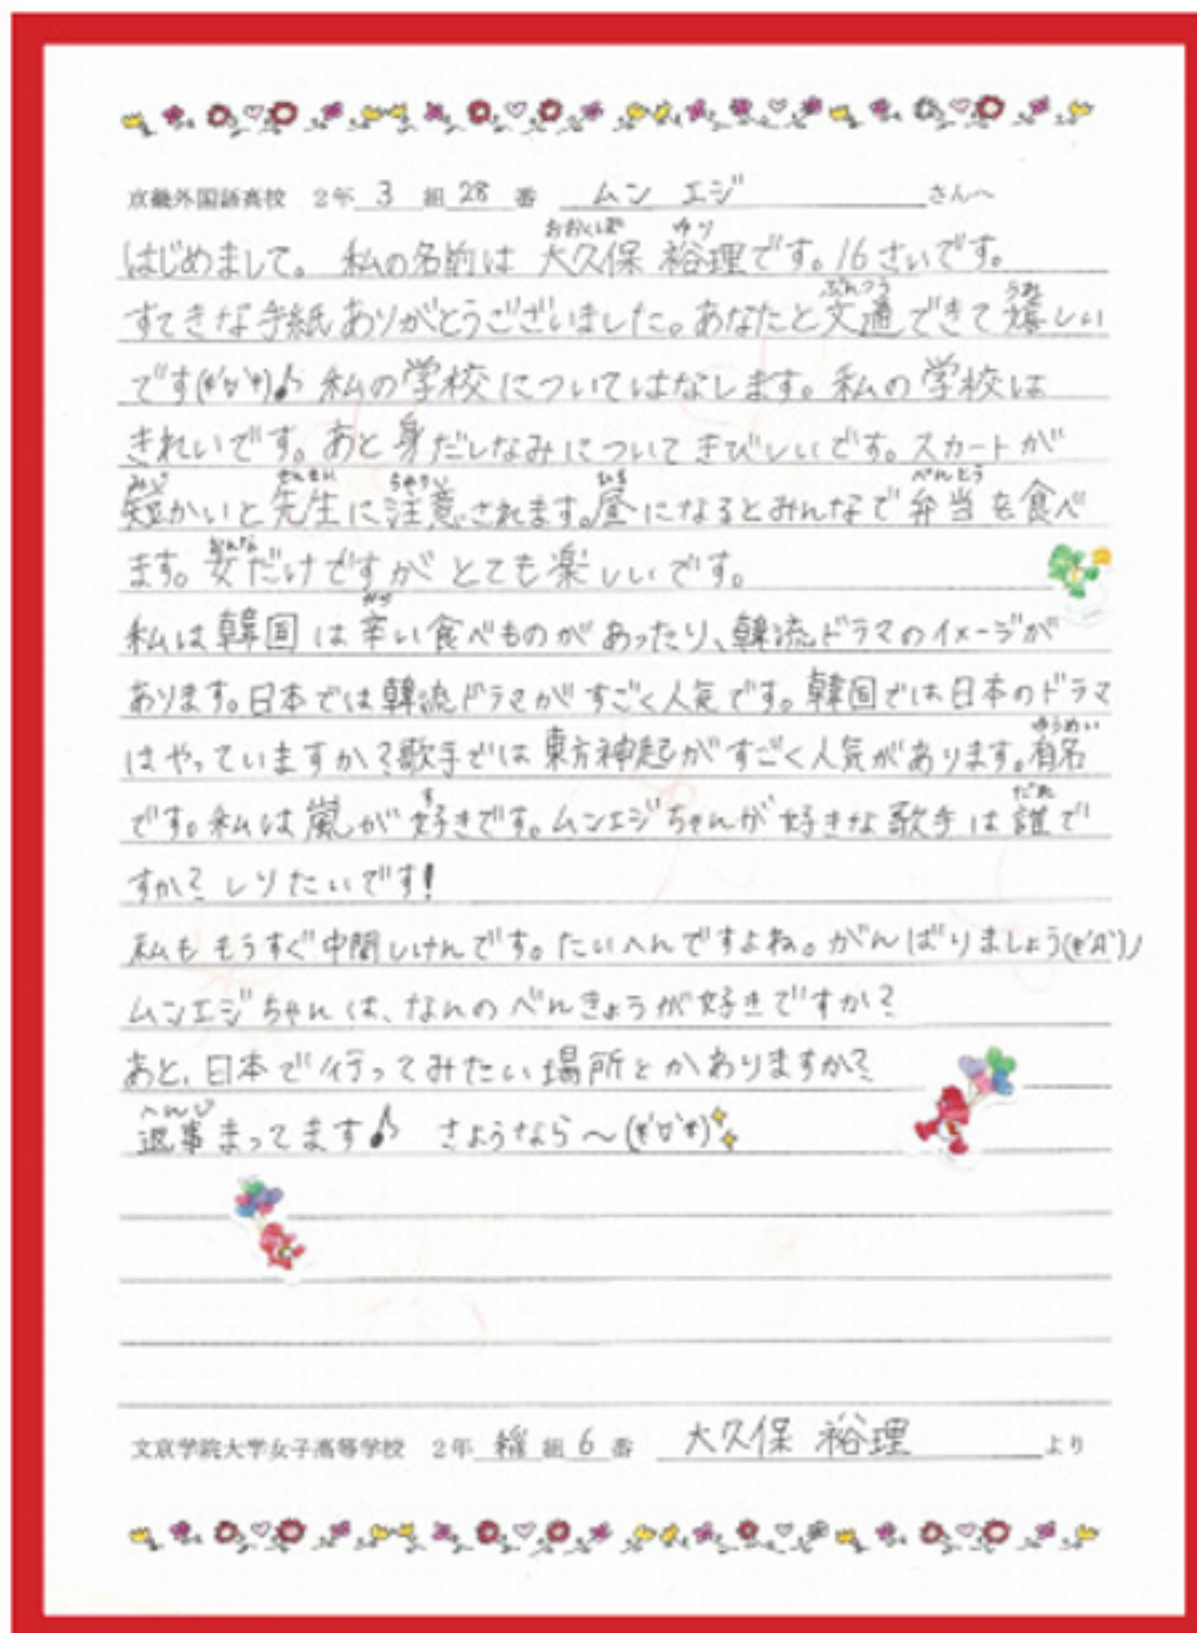 京畿外国語高校 2年 3 組 28 番 ムン エジ さんへ
おおくぼ ゆり
はじめまして。 私の名前は 大久保 裕理です。16さいです。
ぶんつう うれ
すてきな手紙ありがとうございました。あなたと文通できて嬉しい
です(*'▽'*)♪ 私の学校についてはなします。私の学校は
きれいです。あと身だしなみについてきびしいです。スカートが
みじ せんせい ちゅうい ひる べんとう
短かいと先生に注意されます。昼になるとみんなで弁当を食べ
おんな
ます。女だけですがとても楽しいです。
から
私は韓国は辛い食べものがあったり、韓流ドラマのイメージが
あります。日本では韓流ドラマがすごく人気です。韓国では日本のドラマ
ゆうめい
はやっていますか?歌手では東方神起がすごく人気があります。有名
す だれ
です。私は嵐が好きです。ムンエジちゃんが好きな歌手は誰で
すか?しりたいです!
私ももうすぐ中間しけんです。たいへんですよね。がんばりましょう(*'Д')ノ
ムンエジちゃんは、なんのべんきょうが好きですか?
あと、日本で行ってみたい場所とかありますか?
へんじ
返事まってます♪ さようなら〜(*'▽'*)
文京学院大学女子高等学校 2年 組 6 番 大久保 裕理 より